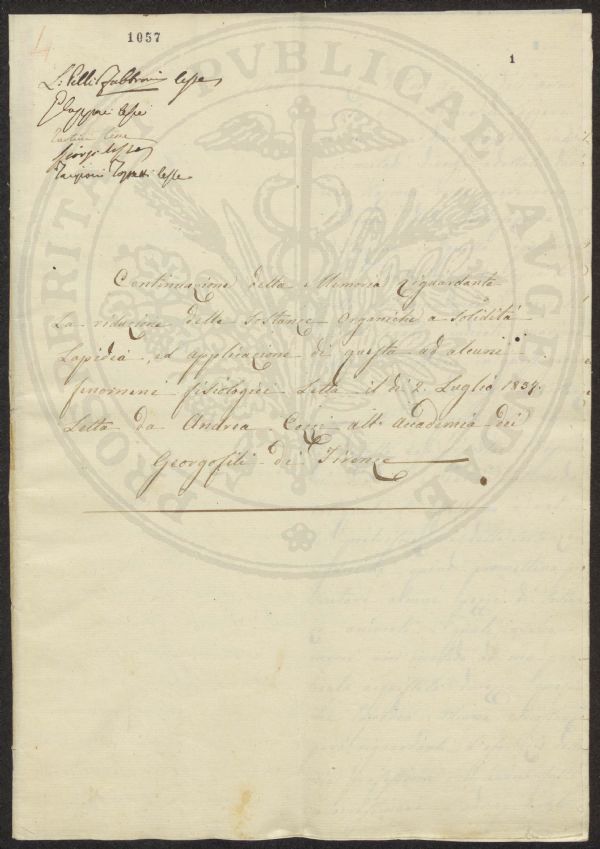 1057
1
L. Pelli Fabbroni lesse
lesse
lesse
Giorgi lesse
Targioni Tozzetti lesse
PROSPERITATI PVBLICAE AVGENDAE
Continuazione della Memoria riguardante
La riduzione delle Sostanze Organiche a Solidità
Lapidea, ed applicazione di questa ad alcuni
fenomeni fisiologici Letta il dì 2. Luglio 1837.
Letta da Andrea Cozzi all' Accademia dei
Georgofili di Firenze